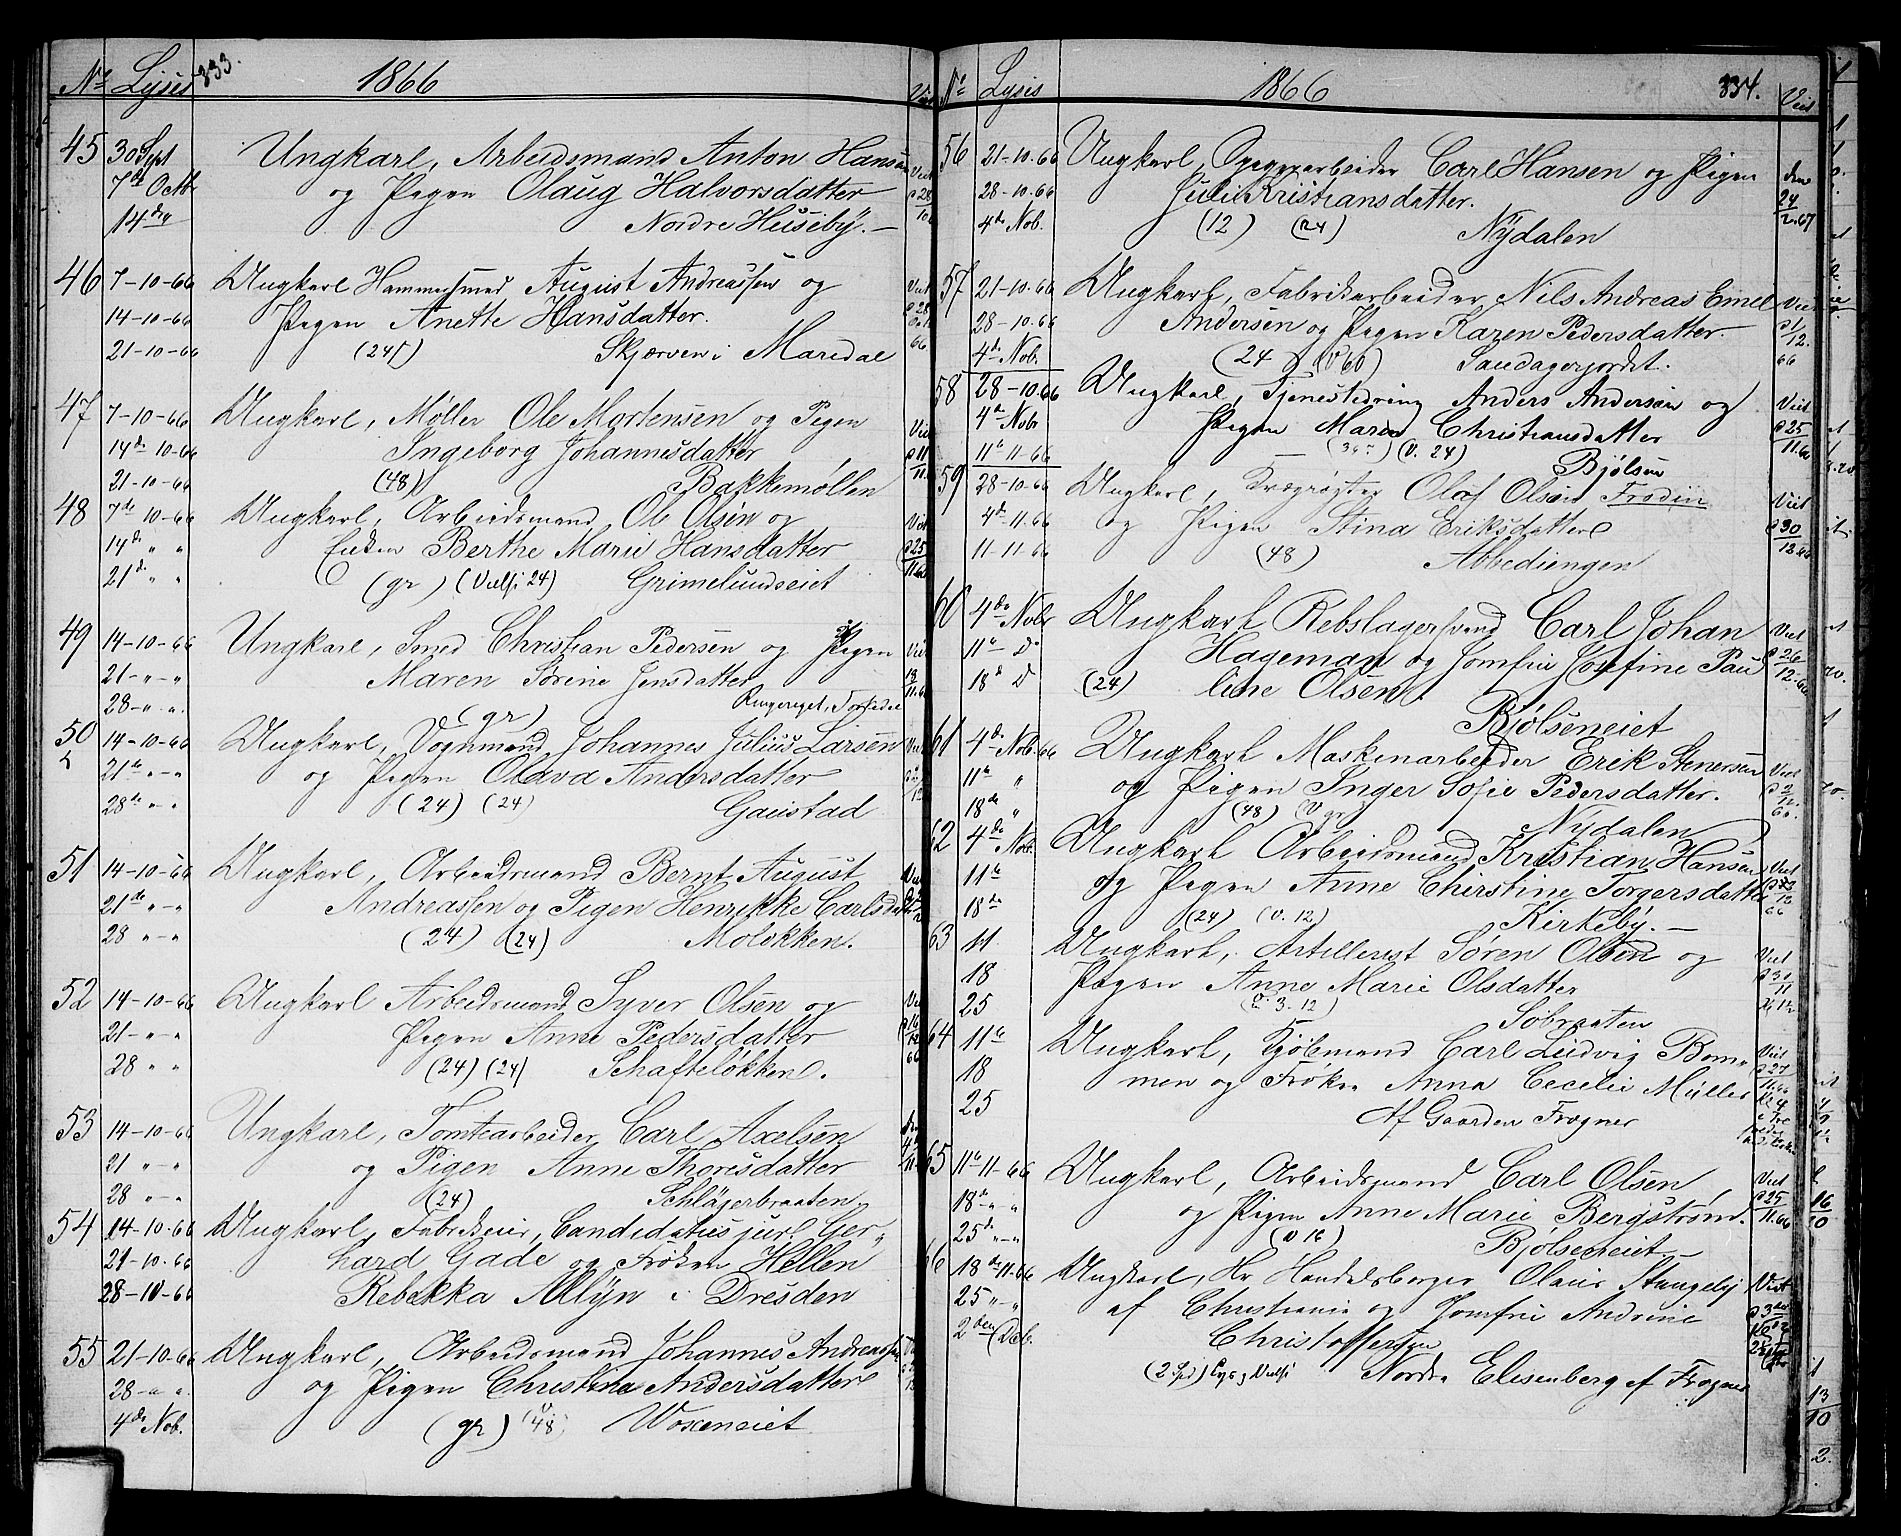 No Lysis 333. 1866 Viet
45 30 Sept Ungkarl, Arbeidsmand Anton Hansen
7de Octb og Pigen Olaug Halvorsdatter
14de Nordre Huseby. —
46 7-10-66 Ungkarl Hammersmed August Andreassen og
14-10-66 Pigen Anette Hansdatter.
21-10-66 (24) Skjærven i Maredal
47 7-10-66 Ungkarl, Møller Ole Mortensen og Pigen
14de 10-66 Ingeborg Johannesdatter
21-10-66 (48) Bakkemøllen
48 7de 10-66 Ungkarl, Arbeidsmand Ole Olsen og
14de " " Enken Berthe Marie Hansdatter
21de " " (gr) (Vielsi 24) Grimelundseiet
49 14-10-66 Ungkarl, Smed Christian Pedersen og Pigen
21-"-" Maren Sörine Jensdatter
28-"-" (gr) Ringeriget,
50 14-10-66 Ungkarl, Vognmand Johannes Julius Larsen
21de "-" og Pigen Olava Andersdatter
28de "-" (24) (24) Gaustad
51 14-10-66 Ungkarl, Arbeidsmand Bernt August
21de "-" Andreassen og Pigen Henrikke Carlsdatter
28 "-" (24) (24) Moløkken.
52 14-10-66 Ungkarl Arbeidsmand Syver Olsen og
21-"-" Pigen Anne Pedersdatter
28 " " (24) (24) Schafteløkken.
53 14-10-66 Ungkarl, Tomtearbeider Carl Axelsen
21 "-" og Pigen Anne Thoresdatter
28 "-" (24) Schlägerbraaten
54 14-10-66 Ungkarl, Fabrikeier, Candidatus jur. Ger-
21-10-66 hard Gade og Frøken Hellen
28-10-66 Rebekka Allyn i Dresden
55 21-10-66 Ungkarl, Arbeidsmand Johannes Andreassen
28-"-" og Pigen Christine Andersdatter
4de Nob. (gr) (48) Woxeneiet
No Lysis 1866 334. Viet
56 21-10-66 Ungkarl, Carl Hansen og Pigen
28-10-66 Julie Kristiansdatter.
4de Nob. (12) (24) Nydalen
den 24/2.67
57 21-10-66 Ungkarl, Fabrikarbeider Nils Andreas Emil
28-10-66 Andersen og Pigen Karen Pedersdatter.
4de Nob. (24) (V 60) Sandagerjordet.
58 28-10-66 Ungkarl, Tjenestedreng Anders Andersen og
4de Nobr Pigen Maren Christiansdatter
11te 11-66 (V. 24) Bjølsen
59 28-10-66 Ungkarl, Kvægrøgter Olof Olsen Frodin
4de-11-66 og Pigen Stina Eriksdatter
11-11-66 (48) Abbediengen
60 4de Nobr Ungkarl Rebslagersvend Carl Johan
11te Do Hageman og Jomfru Josefine Pau
18de D (24) line Olsen
Bjølseneiet
61 4de Nob. 66 Ungkarl Maskinarbeider Erik Stenersen
11te " og Pigen Inger Sofie Pedersdatter.
18de " (48) (V gr) Nydalen
62 4de Nob. Ungkarl Arbeidsmand Kristian Hansen
11te og Pigen Anne Chirstine Torgersdatter
18de (24) (V. 12) Kirkeby. —
63 11 Ungkarl, Artillerist Sören Olsen og
18 Pigen Anne Marie Olsdatter
25 (V. 3. 12) Sobraaten
64 11te Ungkarl, Kjøbmand Carl Ludvig Bom-
18 men og Frøken Anna Cecelie Müller
25 Af Gaarden Frogner
65 11te-11-66 Ungkarl, Arbeidsmand Carl Olsen
18de " " og Pigen Anne Marie Bergstrøm.
25de "-" (V 16) Bjølseneiet —
66 18de-11-66 Ungkarl, Hr. Handelsborger Olaus Stangeby
25 "-" af Christiania og Jomfru Andrine
2den Deb. Christoffersen
(2 Spd) Lys og Vielsi Nordre Elisenberg af Frogner